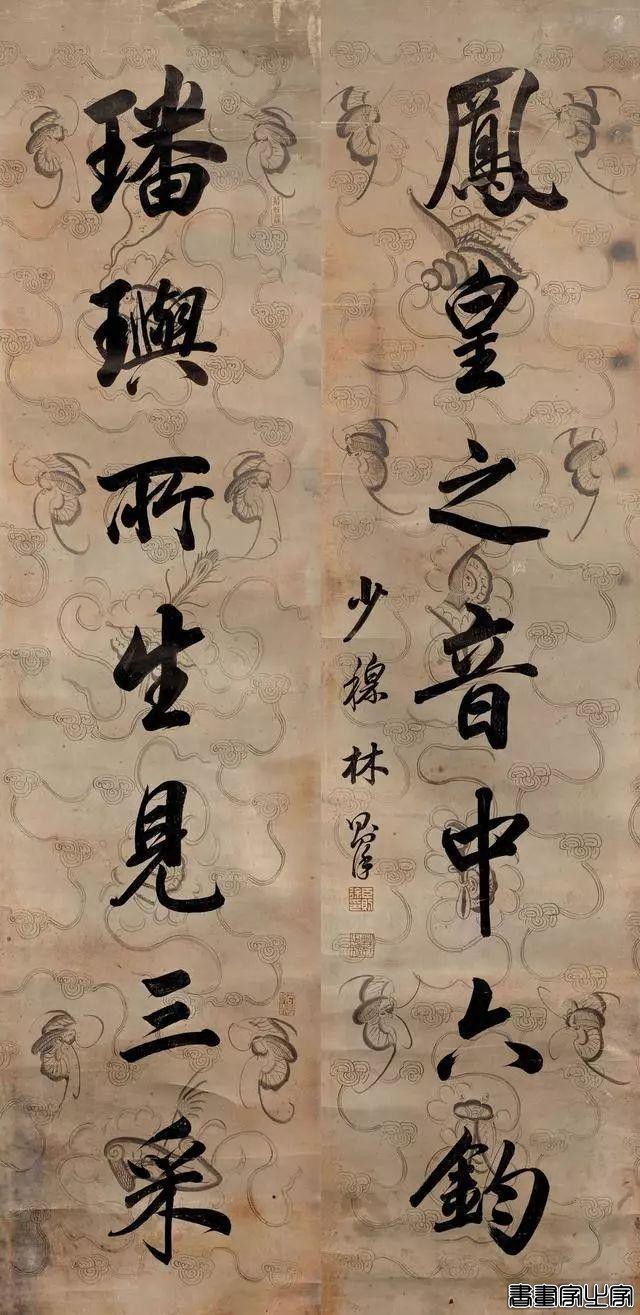 鳳皇之音中六鈞
少穆林則徐
璠璵所生見三采
書畫家之家